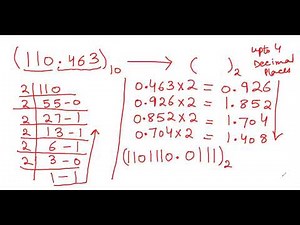 (110.463)10 → ( )2 upto 4 Decimal Places
2 | 110
2 | 55-0
2 | 27-1
2 | 13-1
2 | 6-1
2 | 3-0
1-1
0.463×2 = 0.926
0.926×2 = 1.852
0.852×2 = 1.704
0.704×2 = 1.408
(110110.0111)2